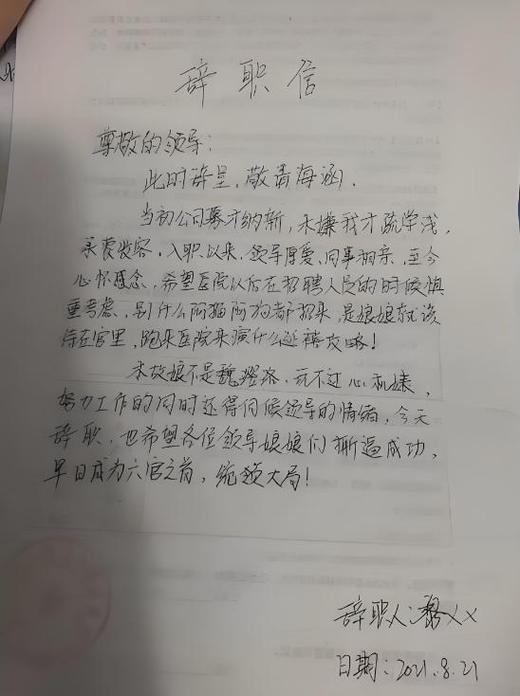 辞职信
尊敬的领导：
此时辞呈，敬请海涵．
当初公司募才纳新，未嫌我才疏学浅，
承蒙收容．入职以来，领导厚爱、同事相亲，至今
心怀感念，希望医院以后在招聘人员的时候慎
重考虑，别什么阿猫阿狗都招来，是娘娘就该
待在宫里，跑来医院来演什么延禧攻略！
本姑娘不是魏璎珞，玩不过心机婊，
努力工作的同时还得伺候领导的情绪，今天
辞职，也希望各位领导娘娘们撕逼成功，
早日成为六宫之首，统领大局！
辞职人：xx
日期：2021.8.21